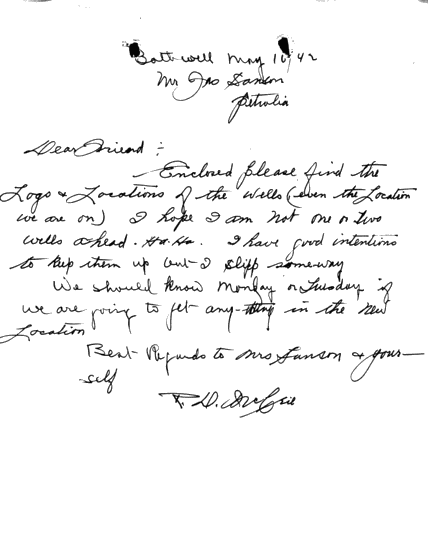 Bothwell May 16/42
Mr Jas Sanson
Petrolia
Dear Friend :-
Enclosed please find the
Logs & Locations of the wells (even the Location
we are on) I hope I am not one or two
wells ahead. Ha. Ha. I have good intentions
to keep them up but I slipp some-way
We should know Monday or Tuesday if
we are going to get any-thing in the new
Location
Best Regards to Mrs Sanson & your-
self